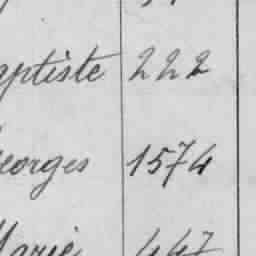 aptiste 222
eorges 1574
Marie 447